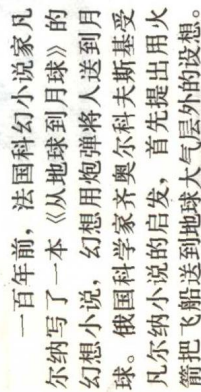 一百年前，法国科幻小说家凡
尔纳写了一本《从地球到月球》的
幻想小说，幻想用炮弹将人送到月
球。俄国科学家齐奥尔科夫斯基受
凡尔纳小说的启发，首先提出用火
箭把飞船送到地球大气层外的设想。